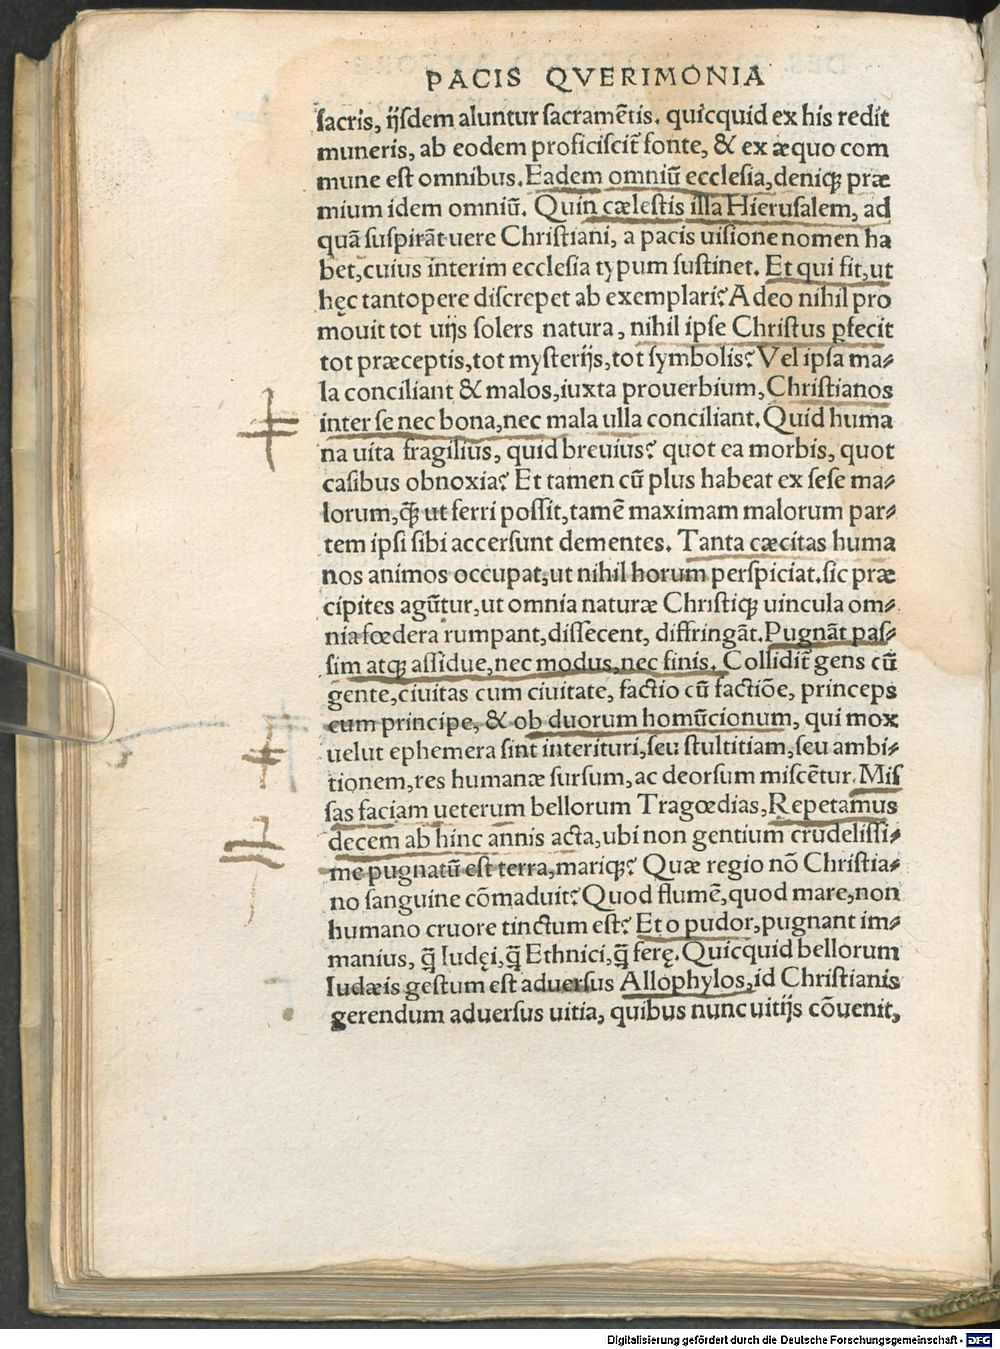 PACIS QVERIMONIA
ſacris, ijſdem aluntur ſacramētis. quicquid ex his redit
muneris, ab eodem proficiſcit᷑ fonte, & ex æquo com
mune eſt omnibus. Eadem omniū eccleſia, deniqꝫ præ
mium idem omniū. Quin cæleſtis illa Hieruſalem, ad
quā ſuſpirāt uere Chriſtiani, a pacis uiſione nomen ha
bet, cuius interim eccleſia typum ſuſtinet. Et qui fit, ut
hęc tantopere diſcrepet ab exemplari? Adeo nihil pro
mouit tot uijs ſolers natura, nihil ipſe Chriſtus ꝑfecit
tot præceptis, tot myſterijs, tot ſymbolis? Vel ipſa ma⸗
la conciliant & malos, iuxta prouerbium, Chriſtianos
inter ſe nec bona, nec mala ulla conciliant. Quid huma
na uita fragilius, quid breuius? quot ea morbis, quot
caſibus obnoxia? Et tamen cū plus habeat ex ſeſe ma⸗
lorum, q̄ꝫ ut ferri poſſit, tamē maximam malorum par⸗
tem ipſi ſibi accerſunt dementes. Tanta cæcitas huma
nos animos occupat, ut nihil horum perſpiciat. ſic præ
cipites agūtur, ut omnia naturæ Chriſtiqꝫ uincula om⸗
nia fœdera rumpant, diſſecent, diffringāt. Pugnāt paſ⸗
ſim atqꝫ aſſidue, nec modus, nec finis. Collidit᷑ gens cū
gente, ciuitas cum ciuitate, factio cū factiōe, princeps
cum principe, & ob duorum homūcionum, qui mox
uelut ephemera ſint interituri, ſeu ſtultitiam, ſeu ambi⸗
tionem, res humanæ ſurſum, ac deorſum miſcētur. Miſ
ſas faciam ueterum bellorum Tragœdias, Repetamus
decem ab hinc annis acta, ubi non gentium crudeliſſi⸗
me pugnatū eſt terra, mariqꝫ? Quæ regio nō Chriſtia⸗
no ſanguine cōmaduit? Quod flumē, quod mare, non
humano cruore tinctum eſt? Et o pudor, pugnant im⸗
manius, q̄ Iudęi, q̄ Ethnici, q̄ ferę. Quicquid bellorum
Iudæis geſtum eſt aduerſus Allophylos, id Chriſtianis
gerendum aduerſus uitia, quibus nunc uitijs cōuenit,
Digitalisierung gefördert durch die Deutsche Forschungsgemeinschaft - DFG